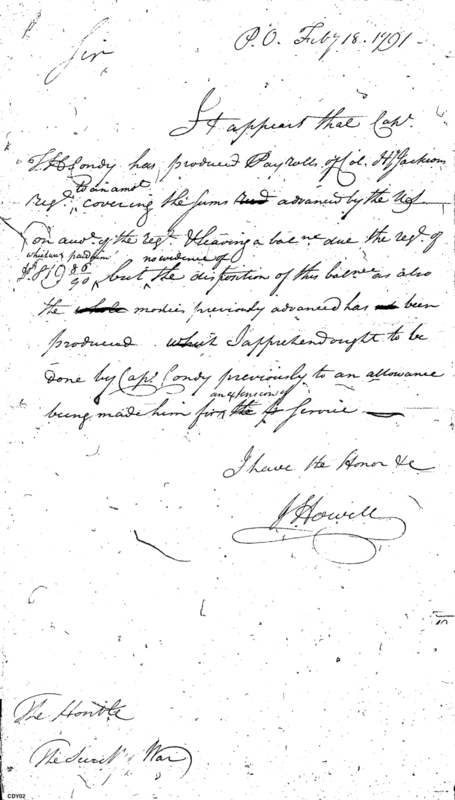 P.O. Feby 18. 1791
Sir
It appears that Capt.
Condy has produced Payrolls of Col. H Jackson
to an amt
regt. covering the sums advanced by the US
on acct. of the regt. & leaving a balnce due the regt. of
which was paid him no evidence of
80/90, but the disposition of this balnce as also
the whole monies previously advanced has been
produced which I apprehend ought to be
done by Capt. Condy previously to an allowance
an extension of
being made him for the Service
I have the Honor &c
J Howell
The Honble
The Secrety War
CDY02